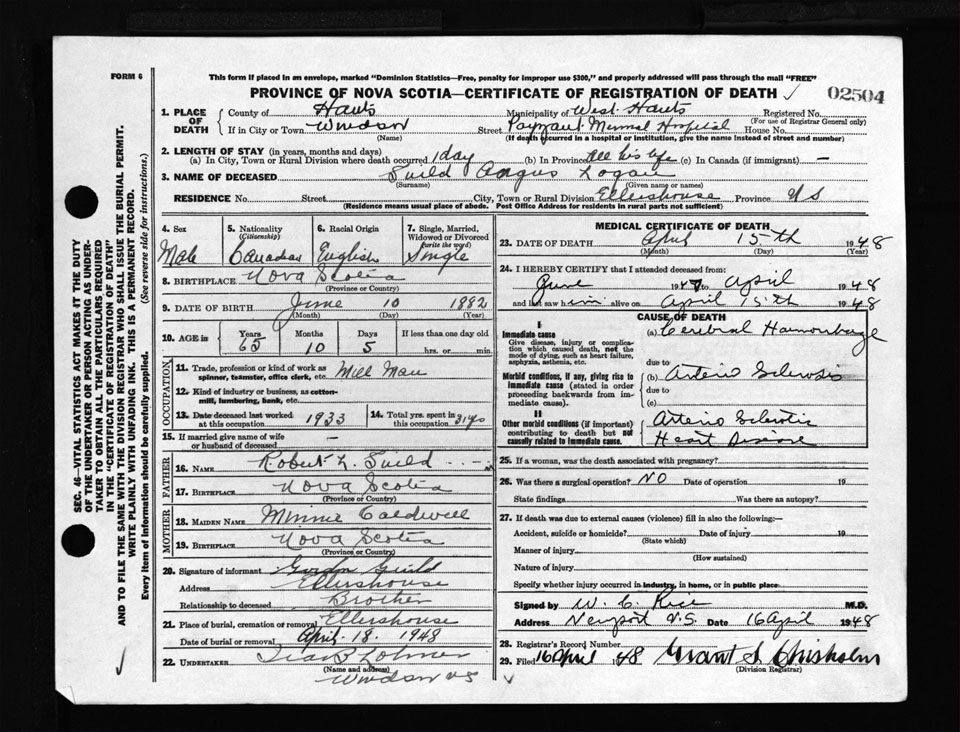 FORM 6
This form if placed in an envelope, marked "Dominion Statistics—Free, penalty for improper use $300," and properly addressed will pass through the mail "FREE"
PROVINCE OF NOVA SCOTIA—CERTIFICATE OF REGISTRATION OF DEATH
02504
1. PLACE OF DEATH
County of Hants Municipality of West Hants Registered No.
(For use of Registrar General only)
If in City or Town Windsor Street Payzant Memorial Hospital House No.
(Name) (If death occurred in a hospital or institution, give the name instead of street and number)
2. LENGTH OF STAY (in years, months and days)
(a) In City, Town or Rural Division where death occurred 1 day (b) In Province all his life (c) In Canada (if immigrant) —
3. NAME OF DECEASED Guild Angus Logan
(Surname) (Given name or names)
RESIDENCE No. Street City, Town or Rural Division Ellershouse Province N S
(Residence means usual place of abode. Post Office Address for residents in rural parts not sufficient)
4. Sex
Male
5. Nationality
(Citizenship)
Canadian
6. Racial Origin
English
7. Single, Married, Widowed or Divorced
(write the word)
Single
8. BIRTHPLACE Nova Scotia
(Province or Country)
9. DATE OF BIRTH June 10 1882
(Month) (Day) (Year)
10. AGE in
Years Months Days If less than one day old
65 10 5 hrs. or min.
OCCUPATION
11. Trade, profession or kind of work as
spinner, teamster, office clerk, etc. Mill Man
12. Kind of industry or business, as cotton-
mill, lumbering, bank, etc.
13. Date deceased last worked
at this occupation 1933
14. Total yrs. spent in
this occupation 31 yrs
15. If married give name of wife
or husband of deceased —
FATHER
16. NAME Robert L. Guild
17. BIRTHPLACE Nova Scotia
(Province or Country)
MOTHER
18. MAIDEN NAME Minnie Caldwell
19. BIRTHPLACE Nova Scotia
(Province or Country)
20. Signature of informant Gordon Guild
Address Ellershouse
Relationship to deceased Brother
21. Place of burial, cremation or removal Ellershouse
Date of burial or removal April 18, 1948
22. UNDERTAKER
(Name and address)
Windsor NS
MEDICAL CERTIFICATE OF DEATH
23. DATE OF DEATH April 15th 1948
(Month) (Day) (Year)
24. I HEREBY CERTIFY that I attended deceased from:
June 1947 to April 1948
and last saw him alive on April 15th 1948
CAUSE OF DEATH
I
Immediate cause
Give disease, injury or complica-
tion which caused death, not the
mode of dying, such as heart failure,
asphyxia, asthenia, etc.
(a) Cerebral Haemorrhage
due to
Morbid conditions, if any, giving rise to
immediate cause (stated in order
proceeding backwards from im-
mediate cause).
(b) Arterio Sclerosis
due to
(c)
II
Other morbid conditions (if important)
contributing to death but not
causally related to immediate cause.
Arterio Sclerotic
Heart Disease
25. If a woman, was the death associated with pregnancy?
26. Was there a surgical operation? NO Date of operation 19
State findings Was there an autopsy?
27. If death was due to external causes (violence) fill in also the following:—
Accident, suicide or homicide? Date of injury 19
(State which)
Manner of injury
(How sustained)
Nature of injury
Specify whether injury occurred in industry, in home, or in public place
Signed by W. C. Rice M.D.
Address Newport N.S. Date 16 April 1948
28. Registrar's Record Number
29. Filed 16 April 1948 Grant S. Chisholm
(Division Registrar)
SEC. 46—VITAL STATISTICS ACT MAKES IT THE DUTY
OF THE UNDERTAKER OR PERSON ACTING AS UNDER-
TAKER TO OBTAIN ALL THE PARTICULARS REQUIRED
IN THE "CERTIFICATE OF REGISTRATION OF DEATH"
AND TO FILE THE SAME WITH THE DIVISION REGISTRAR WHO SHALL ISSUE THE BURIAL PERMIT.
WRITE PLAINLY WITH UNFADING INK. THIS IS A PERMANENT RECORD.
Every item of information should be carefully supplied. (See reverse side for instructions.)